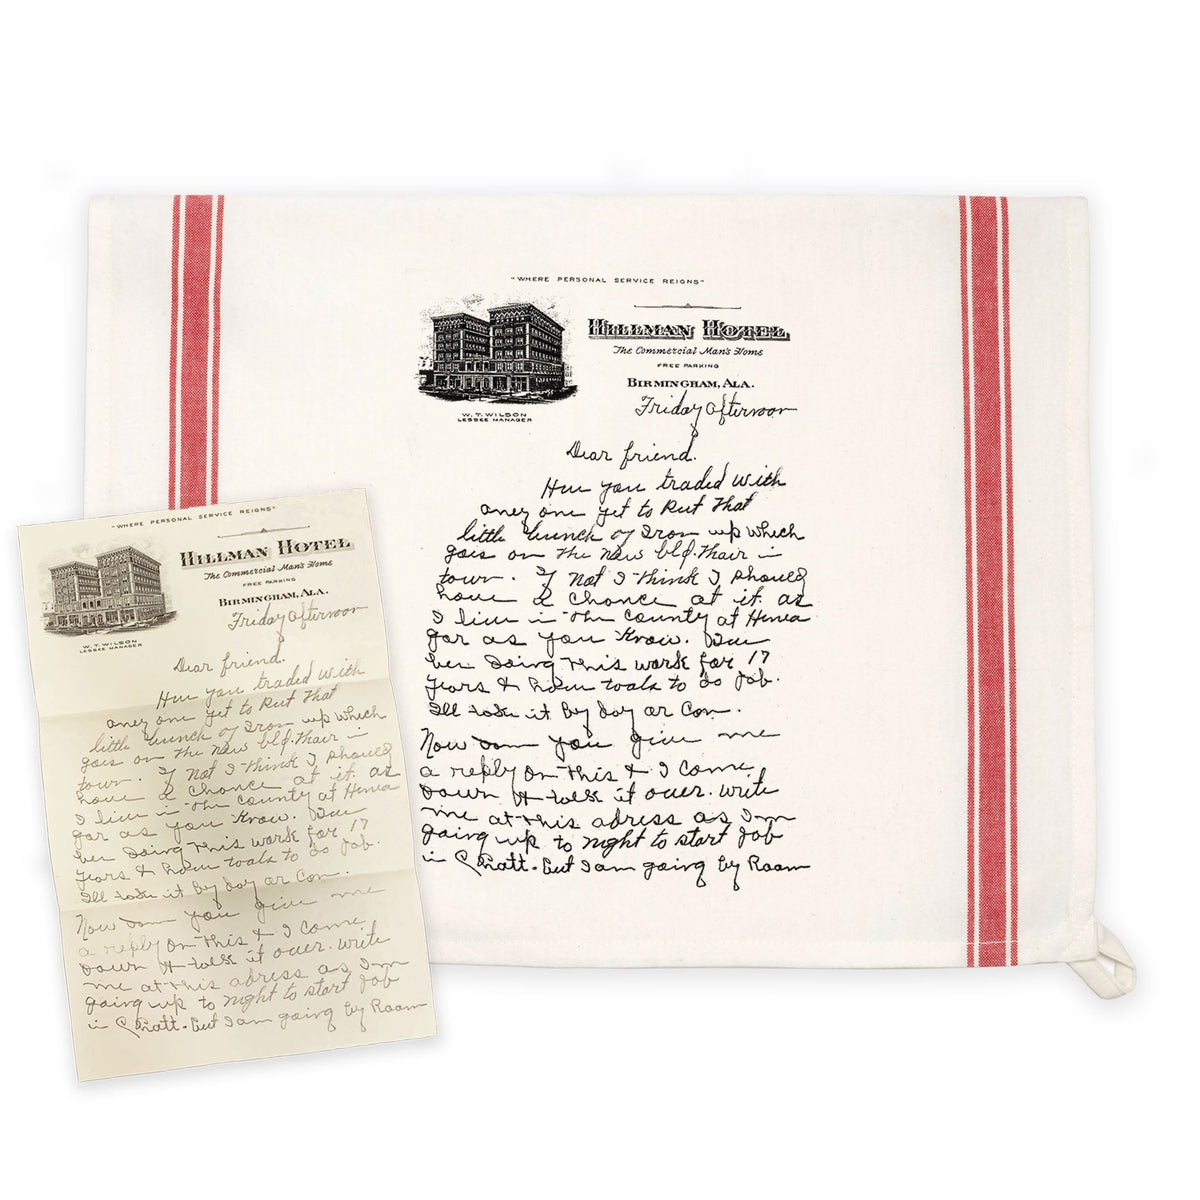 "WHERE PERSONAL SERVICE REIGNS"
HILLMAN HOTEL
The Commercial Man's Home
FREE PARKING
BIRMINGHAM, ALA.
W. T. WILSON
LESSEE MANAGER
Friday afternoon
Dear friend.
Have you traded with
aney one yet to Put That
little bunch of Iron up which
goes on the new bld. thair in
town. If not I think I should
have a chance at it. as
I live in the County at
far as you Know.
ben Doing this work for 17
years & have tools to do Job.
Ill take it by day or Con.
Now you give me
a reply on this & I come
down & talk it over. write
me at this adress as I'm
going up to night to start Job
in Pratt. but I am going by Room
"WHERE PERSONAL SERVICE REIGNS"
HILLMAN HOTEL
The Commercial Man's Home
FREE PARKING
BIRMINGHAM, ALA.
W. T. WILSON
LESSEE MANAGER
Friday afternoon
Dear friend.
Have you traded with
aney one yet to Put That
little bunch of Iron up which
goes on the new bld. thair in
town. If not I think I should
have a chance at it. as
I live in the County at
far as you Know.
ben Doing this work for 17
years & have tools to do Job.
Ill take it by day or Con.
Now you give me
a reply on this & I come
down & talk it over. write
me at this adress as I'm
going up to night to start Job
in Pratt. but I am going by Room